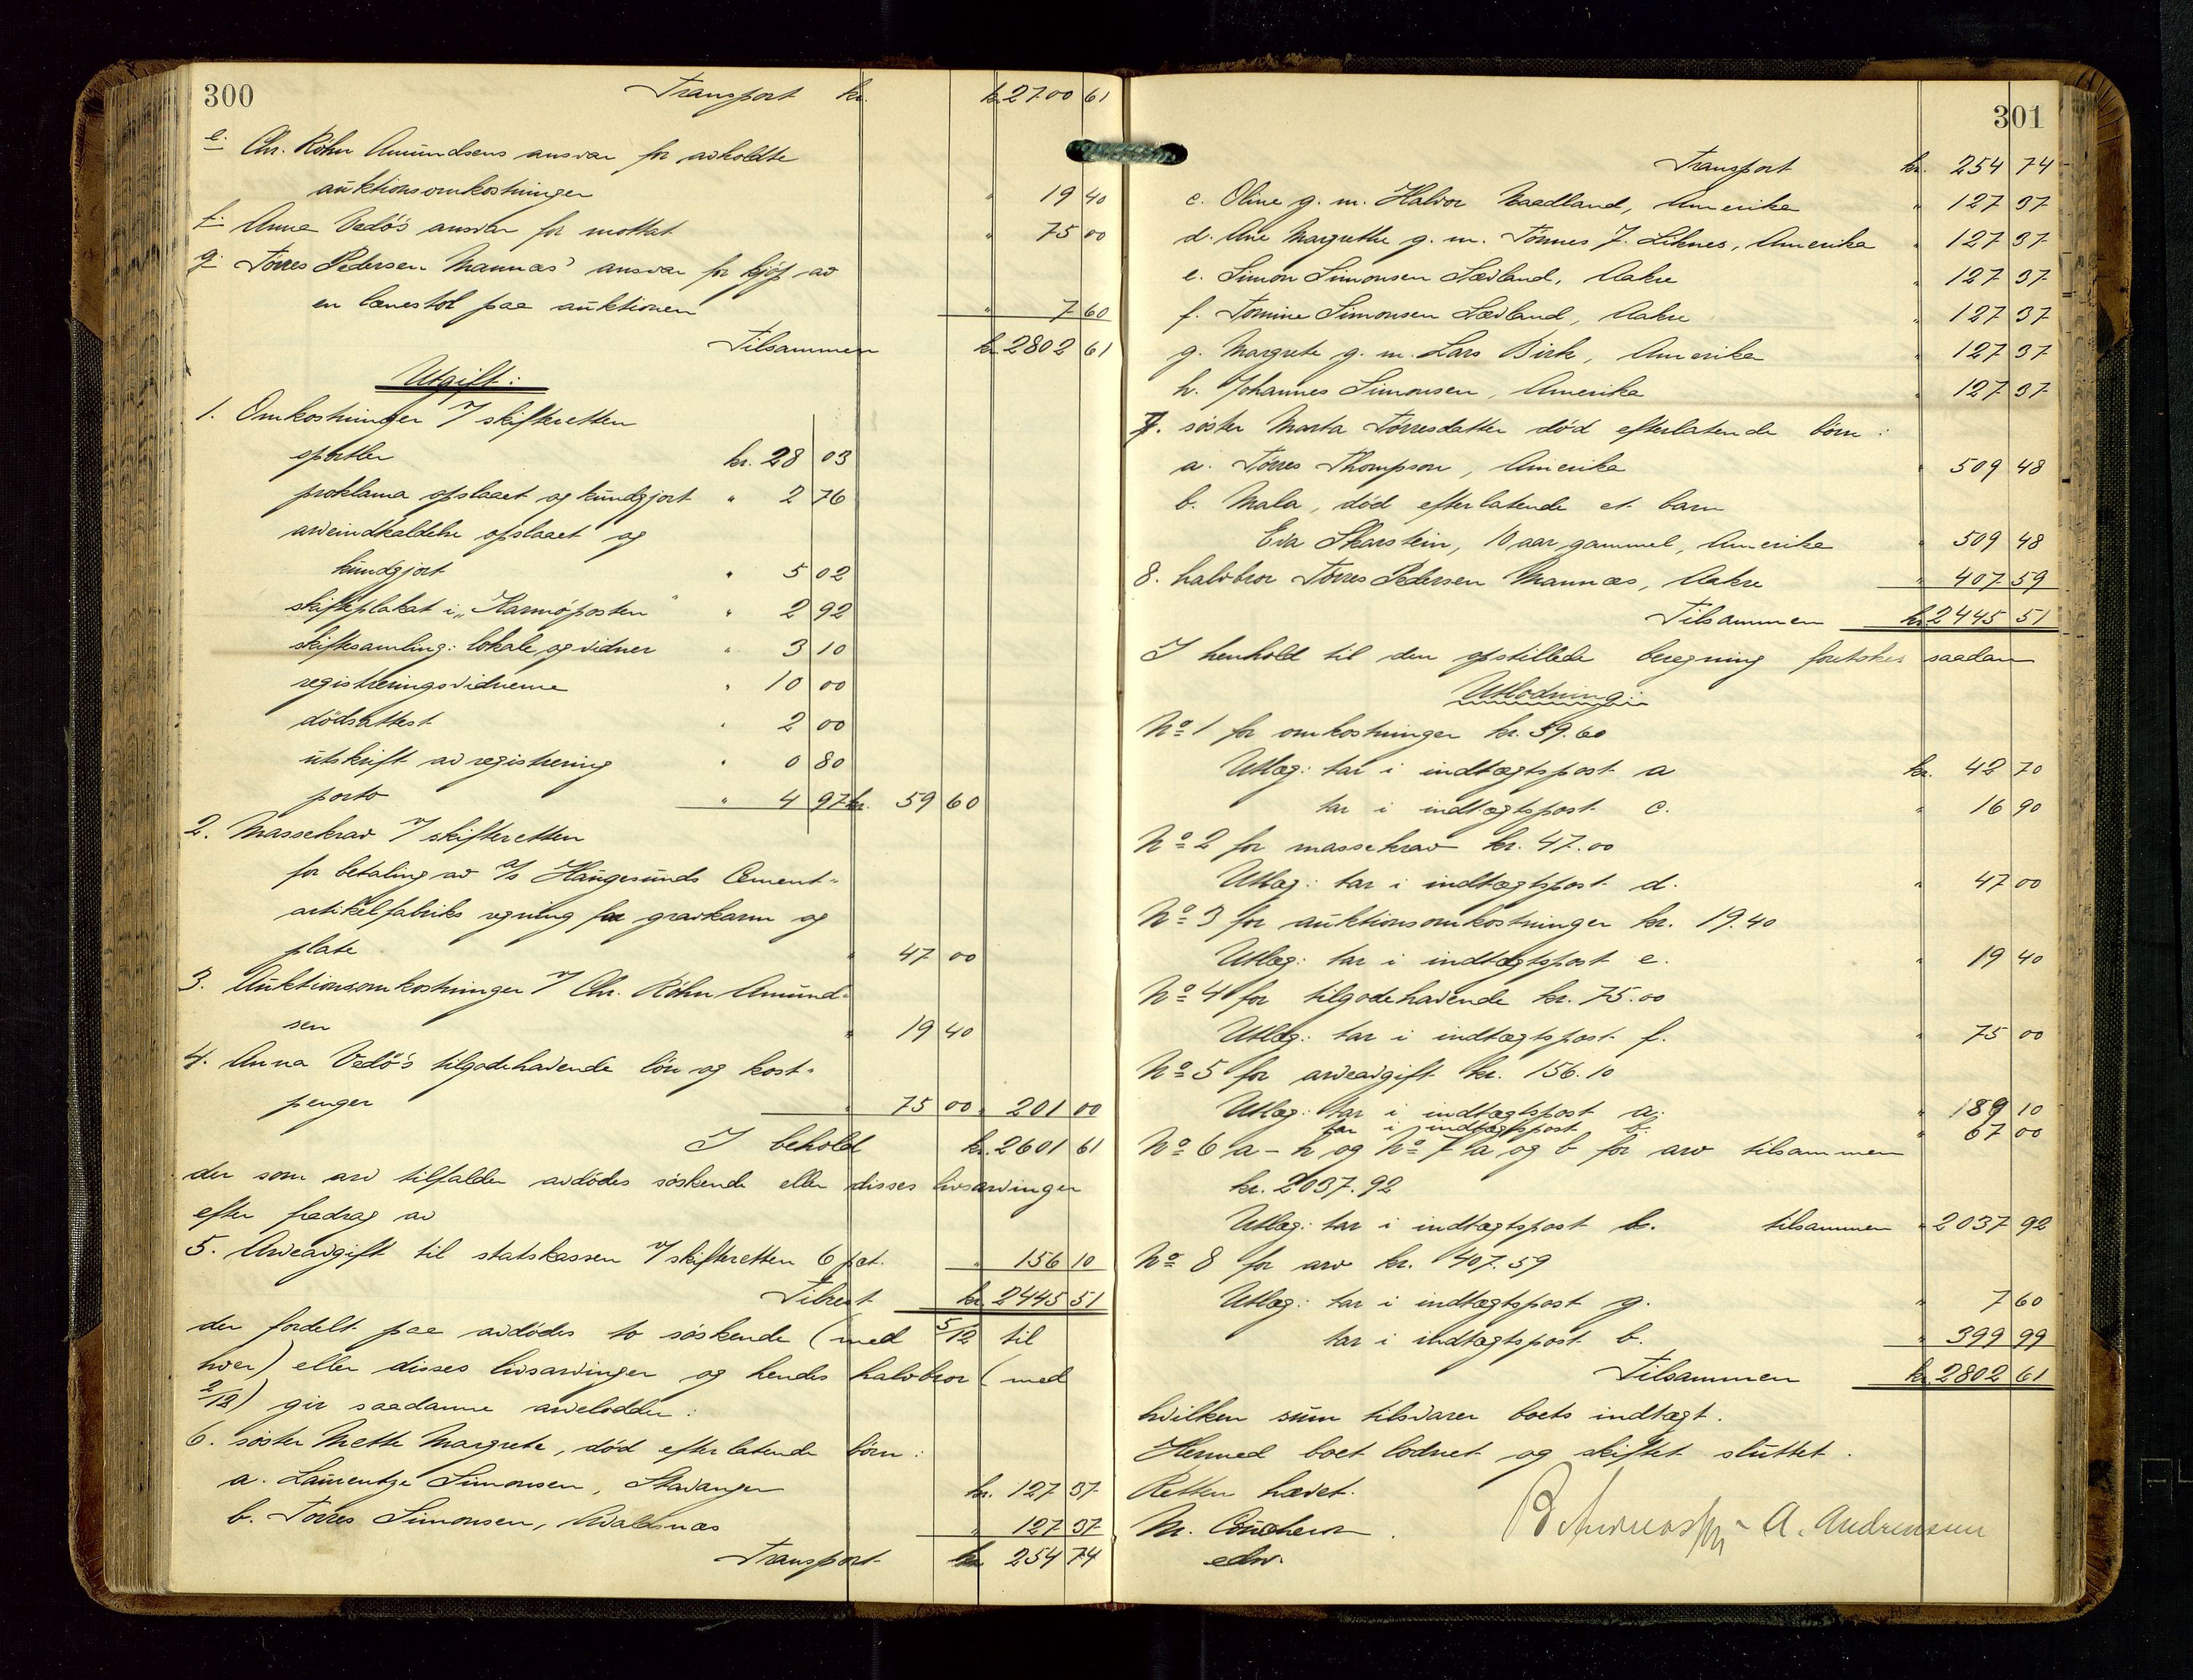 300
Transport kr. kr. 2700 61
e. Chr. Röhn Amundsens ansvar for avholdte
auktionsomkostninger " 19 40
f. Anna Vedö's ansvar for mottat " 75 00
g. Tørres Pedersen Mannæs' ansvar for kjöp av
en lænestol paa auktionen " 7 60
Tilsammen kr. 2802 61
Utgift:
1. Omkostninger v/ skifteretten
sportler kr. 28 03
proklama opslaaet og kundgjort " 2 76
arveindkaldelse opslaaet og
kundgjort " 5 02
skifteplakat i "Karmöposten" " 2 92
skiftesamling: lokale og vidner " 3 10
registreringsvidnerne " 10 00
dödsattest " 2 00
utskrift av registrering " 0 80
porto " 4 97 kr. 59 60
2. Massekrav v/ skifteretten
for betaling av a/s Haugesunds Cement-
artikelfabriks regning for gravkarm og
plate " 47 00
3. Auktionsomkostninger v/ Chr. Röhn Amund-
sen " 19 40
4. Anna Vedö's tilgodehavende lön og kost-
penger " 75 00 " 201 00
I behold kr. 2601 61
der som arv tilfalder avdödes söskende eller disses livsarvinger
efter fradrag av
5. Arveavgift til statskassen v/ skifteretten 6 pct. " 156 10
Tilrest kr. 2445 51
der fordelt paa avdödes to söskende (med 5/12 til
hver) eller disses livsarvinger og hendes halvbror (med
2/12) gir saadanne arvelodder:
6. söster Mette Margrete, död efterlatende börn:
a. Laurentze Simonsen, Stavanger kr. 127 37
b. Torres Simonsen, Avaldsnæs " 127 37
Transport kr. 254 74
301
Transport kr. 254 74
c. Oline g. m. Halvor Naadland, Amerika " 127 37
d. Ane Margrethe g. m. Tönnes J. Liknes, Amerika " 127 37
e. Simon Simonsen Sævland, Aakre " 127 37
f. Tomine Simonsen Sævland, Aakre " 127 37
g. Margrete g. m. Lars Birk, Amerika " 127 37
h. Johannes Simonsen, Amerika " 127 37
7. söster Marta Tørresdatter död efterlatende börn:
a. Tørres Thompson, Amerika " 509 48
b. Mala, död efterlatende et barn
Eva Skarstein, 10 aar gammel, Amerika " 509 48
8. halvbror Tørres Pedersen Mannæs, Aakre " 407 59
Tilsammen kr. 2445 51
I henhold til den opstillede beregning foretokes saadan
Utlodning:
No 1 for omkostninger kr. 59.60
Utlæg: tar i indtægtspost a kr. 42 70
tar i indtægtspost c. " 16 90
No 2 for massekrav kr. 47.00
Utlæg: tar i indtægtspost d. " 47 00
No 3 for auktionsomkostninger kr. 19.40
Utlæg: tar i indtægtspost e. " 19 40
No 4 for tilgodehavende kr. 75.00
Utlæg: tar i indtægtspost f. " 75 00
No 5 for arveavgift kr. 156.10
Utlæg: tar i indtægtspost a. " 189 10
tar i indtægtspost b. " 67 00
No 6 a - h og No 7 a og b for arv tilsammen
kr. 2037.92
Utlæg: tar i indtægtspost b. tilsammen " 2037 92
No 8 for arv kr. 407.59
Utlæg: tar i indtægtspost g. " 7 60
tar i indtægtspost b. " 399 99
Tilsammen kr. 2802 61
hvilken sum tilsvarer boets indtægt.
Hermed boet lodnet og skiftet sluttet.
Retten hævet.
M. Coucheron. A. Andreassen
edsv.